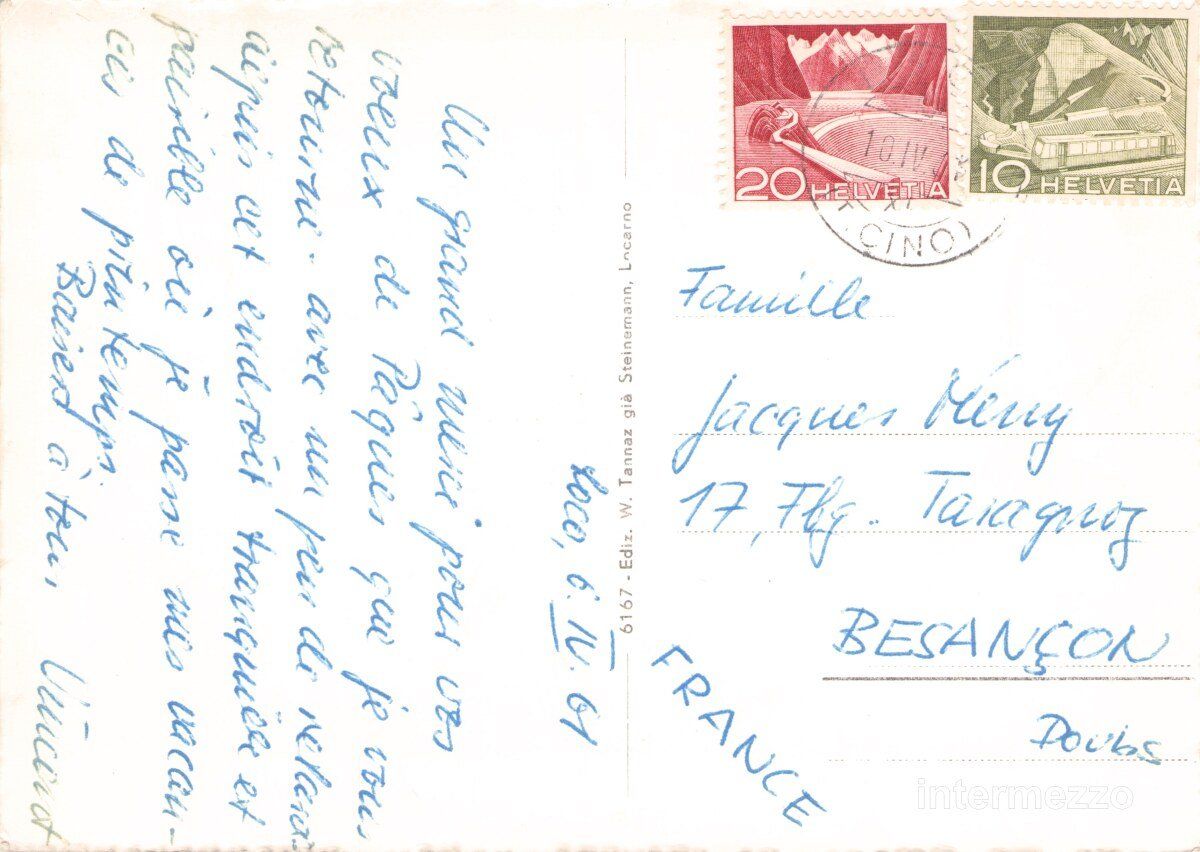 Loco, 6. IV. 61
Un grand merci pour vos
voeux de Pâques que je vous
retourne - avec un peu de retard -
depuis cet endroit tranquille et
paisible où je passe mes vacan-
ces de printemps.
Baisers à tous Vincent
6167 - Ediz. W. Tannaz già Steinemann, Locarno
20 HELVETIA
10 HELVETIA
10.IV.
CINO)
Famille
Jacques
17, Fbg. Taragnoz
BESANÇON
Doubs
FRANCE
intermezzo